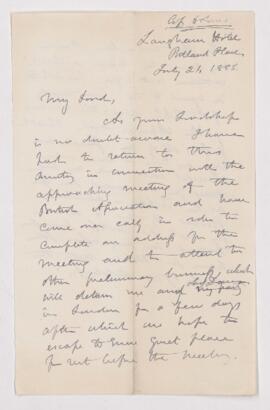 Langham Hotel
Portland Place
July 21, 188
My Lord,
As your Lordship
is no doubt aware I have
had to return to this
country in connection with the
approaching meeting of the
British Association and have
come over early in order to
complete an address for the
meeting and to attend to
other preliminary business which
will detain me and
in London for a few days
after which we hope to
escape to some quiet place
for rest before the meeting.